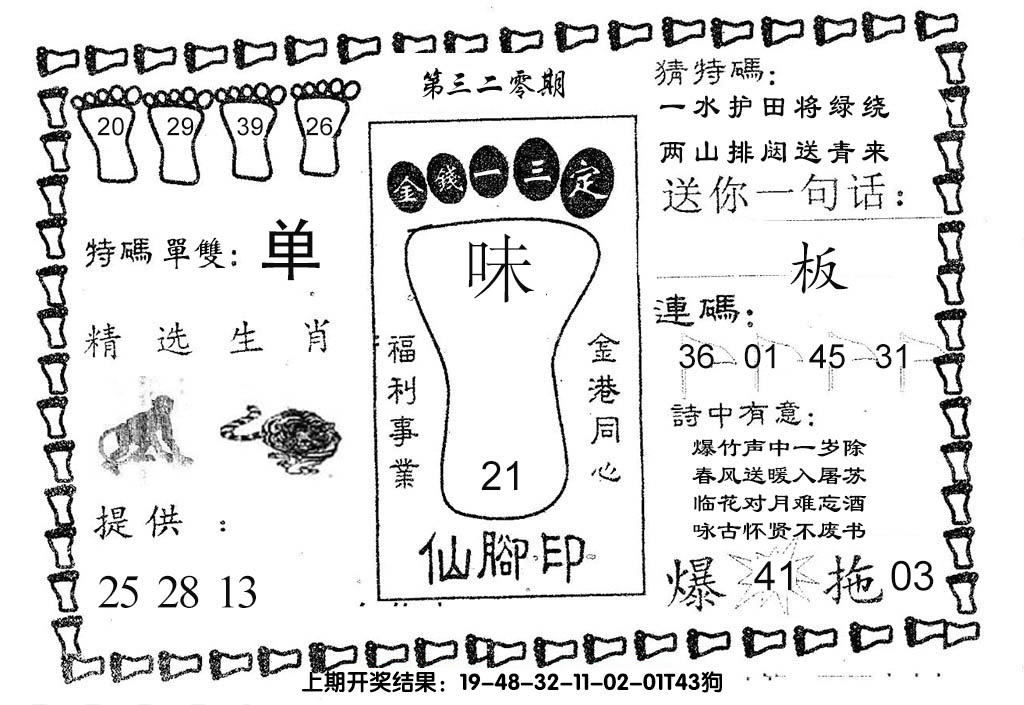 第三二零期
20 29 39 26
特碼單雙：单
精选生肖
提供：
25 28 13
金錢一三定
味
福利事業
金港同心
21
仙腳印
猜特碼：
一水护田将绿绕
两山排闼送青来
送你一句话：
板
連碼：
36 01 45 31
詩中有意：
爆竹声中一岁除
春风送暖入屠苏
临花对月难忘酒
咏古怀贤不废书
爆 41 拖 03
上期开奖结果：19-48-32-11-02-01T43狗